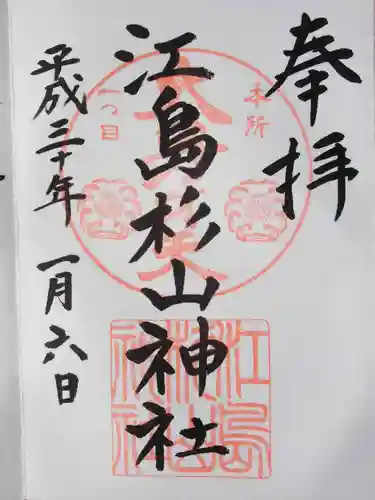 奉拝
本所
一つ目
江島杉山神社
江島
杉山
神社
平成三十年 一月六日